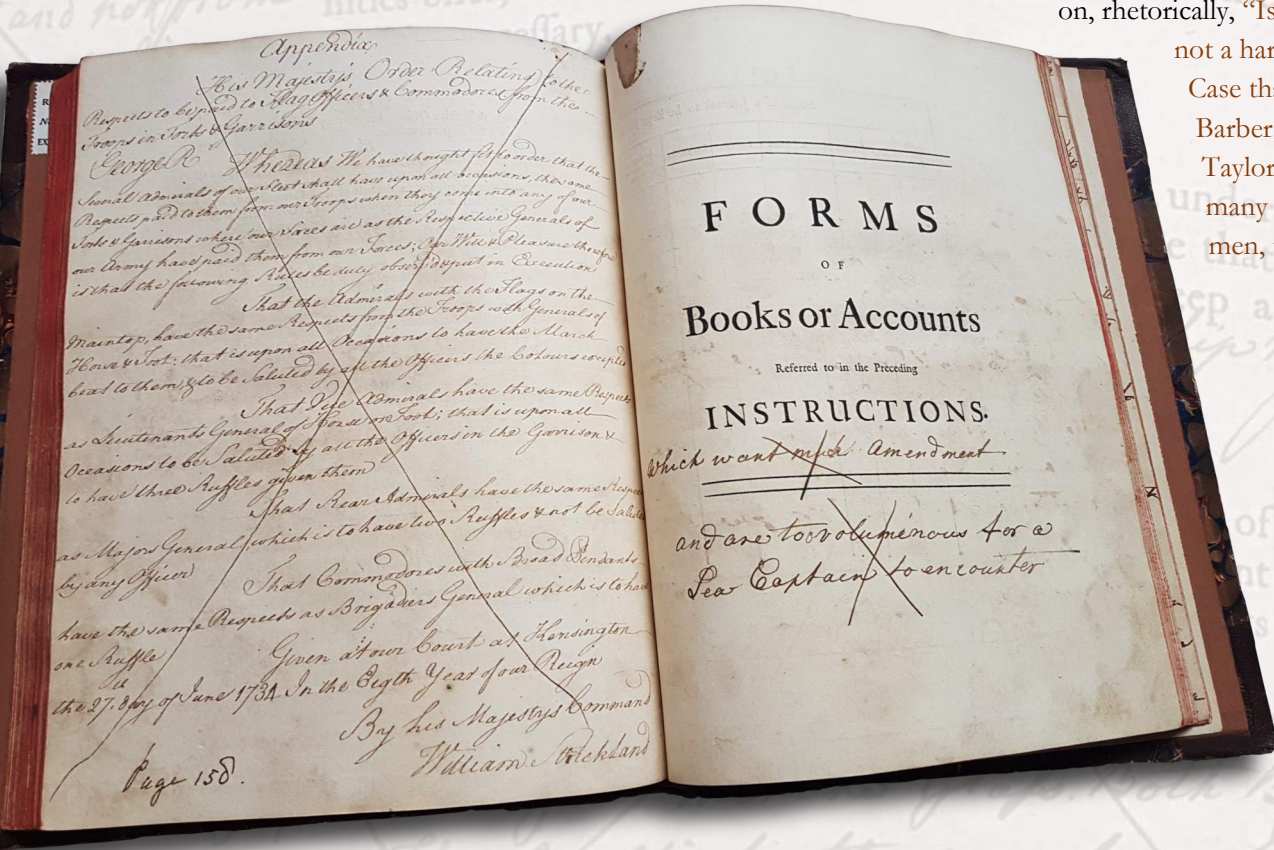 Appendix
His Majesty's Order Relating to the
Respects to be paid to Flag Officers & Commodores from the
Troops in Forts & Garrisons
George R Whereas We have thought fit to order that the
Several Admirals of our Fleet shall have upon all occasions, the same
Respects paid to them from our Troops when they come into any of our
Forts & Garrisons where our Forces are as the Respective Generals of
our Army have paid them from our Forces; Our Will & Pleasure therefore
is that the following Rules be duly observ'd & put in Execution
That the Admirals with the Flags on the
Maintop, have the same Respects from the Troops with Generals of
Horse & Foot; that is upon all Occasions to have the March
beat to them, & to be Saluted by all the Officers the Colours excepted
That Vice Admirals have the same Respects
as Lieutenants General of Horse or Foot; that is upon all
Occasions to be Saluted by all the Officers in the Garrison &
to have three Ruffles given them
That Rear Admirals have the same Respects
as Majors General, which is to have two Ruffles & not be Saluted
by any Officer
That Commodores with Broad Pendants
have the same Respects as Brigadiers General which is to have
one Ruffle
Given at our Court at Kensington
the 27. day of June 1734 In the Eigth Year of our Reign
By his Majestys Command
William Strickland
Page 158.
FORMS
OF
Books or Accounts
Referred to in the Preceding
INSTRUCTIONS.
which want much Amendment
and are too volumenous for a
Sea Captain to encounter
on, rhetorically, “Is
not a har
Case tha
Barber
Taylor
many
men,